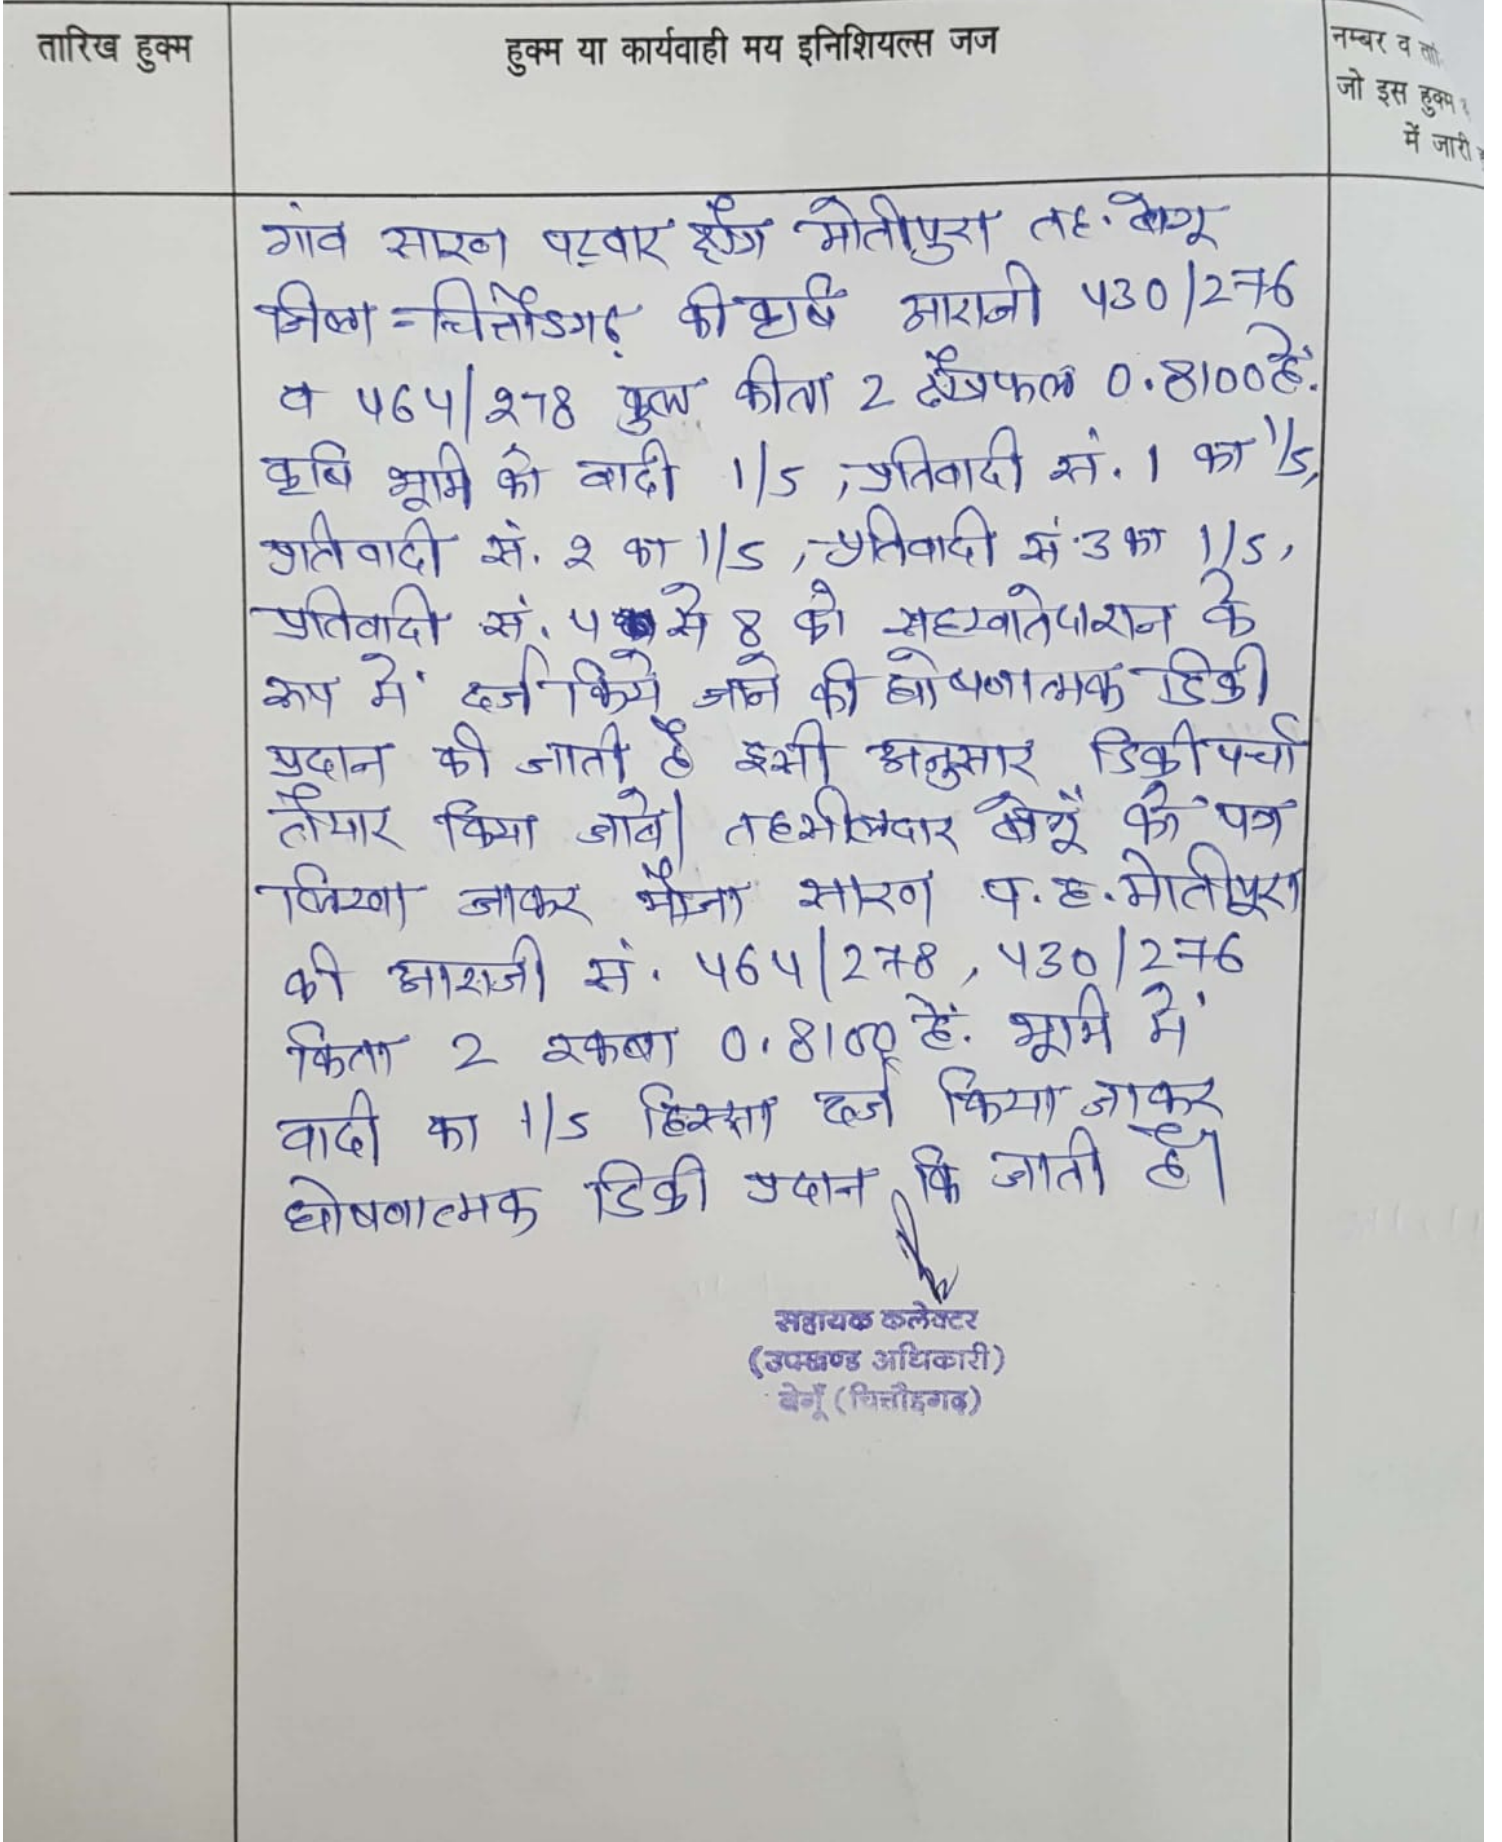 तारिख हुक्म
हुक्म या कार्यवाही मय इनिशियल्स जज
नम्बर व
जो इस हुक्म
में जारी
गांव सारण पटवार क्षेत्र मोतीपुरा तह. बेगू
जिला चित्तौडगढ़ की कृषि आराजी 430/276
व 464/278 कुल कीता 2 क्षेत्रफल 0.8100 हे.
कृषि भूमि को वादी 1/5, प्रतिवादी सं. 1 का 1/5,
प्रतिवादी सं. 2 का 1/5, प्रतिवादी सं. 3 का 1/5,
प्रतिवादी सं. 4 से 8 को सहखातेदारान के
रूप में दर्ज किये जाने की घोषणात्मक डिक्री
प्रदान की जाती है इसी अनुसार डिक्री पर्चा
तैयार किया जावे। तहसीलदार बेगूँ को पत्र
लिखा जाकर मौजा सारण प.ह. मोतीपुरा
की आराजी सं. 464/278, 430/276
किता 2 रकबा 0.8100 हे. भूमि में
वादी का 1/5 हिस्सा दर्ज किया जाकर
घोषणात्मक डिक्री प्रदान कि जाती है।
सहायक कलेक्टर
(उपखण्ड अधिकारी)
बेगूँ (चित्तौड़गढ़)